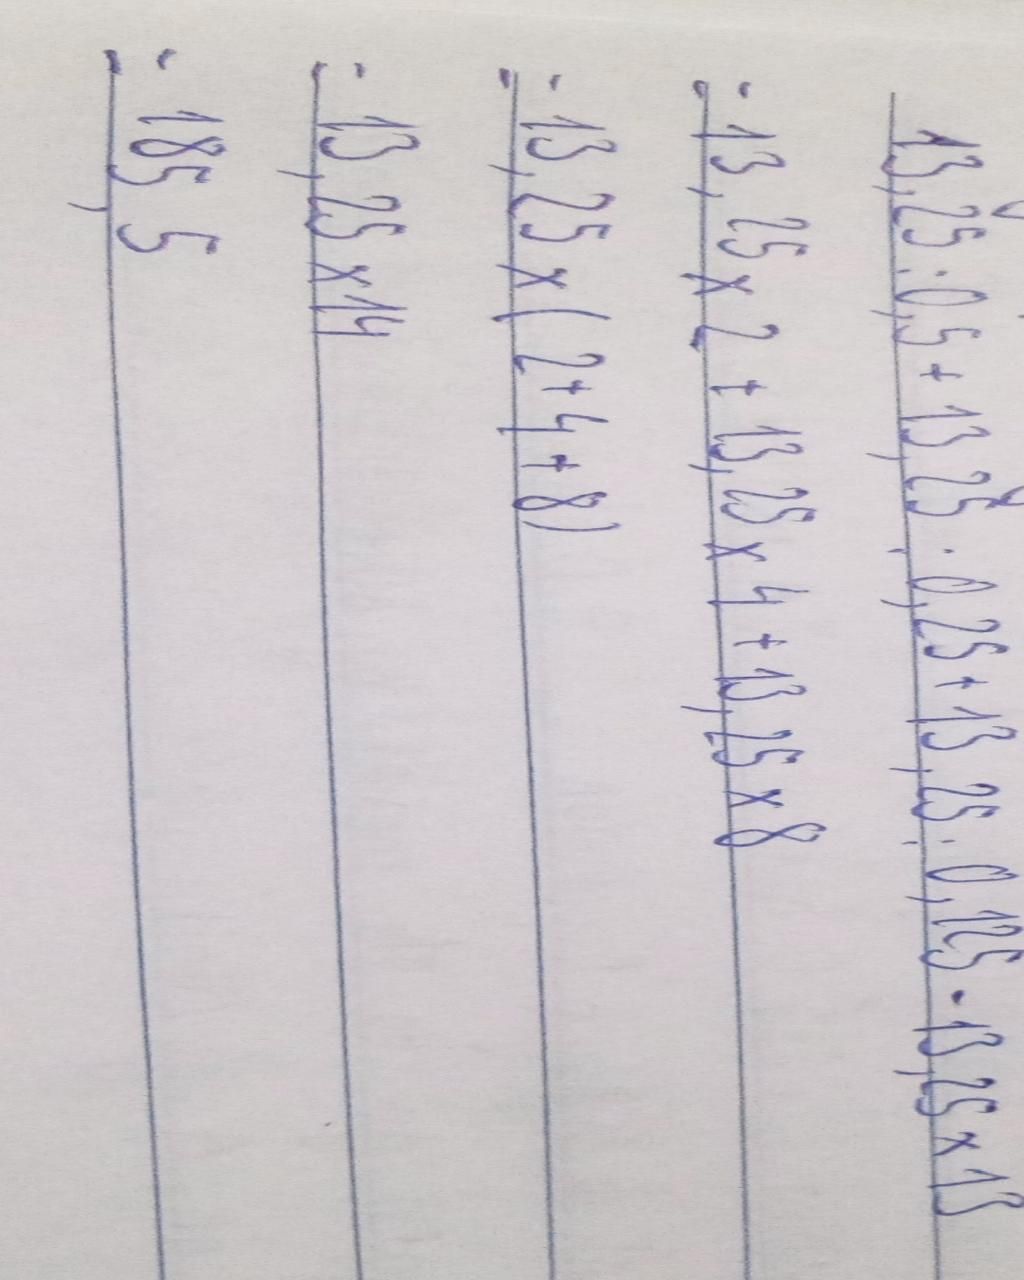 13,25 : 0,5 + 13,25 : 0,25 + 13,25 : 0,125 - 13,25 x 13
= 13,25 x 2 + 13,25 x 4 + 13,25 x 8
= 13,25 x ( 2 + 4 + 8 )
= 13,25 x 14
= 185,5